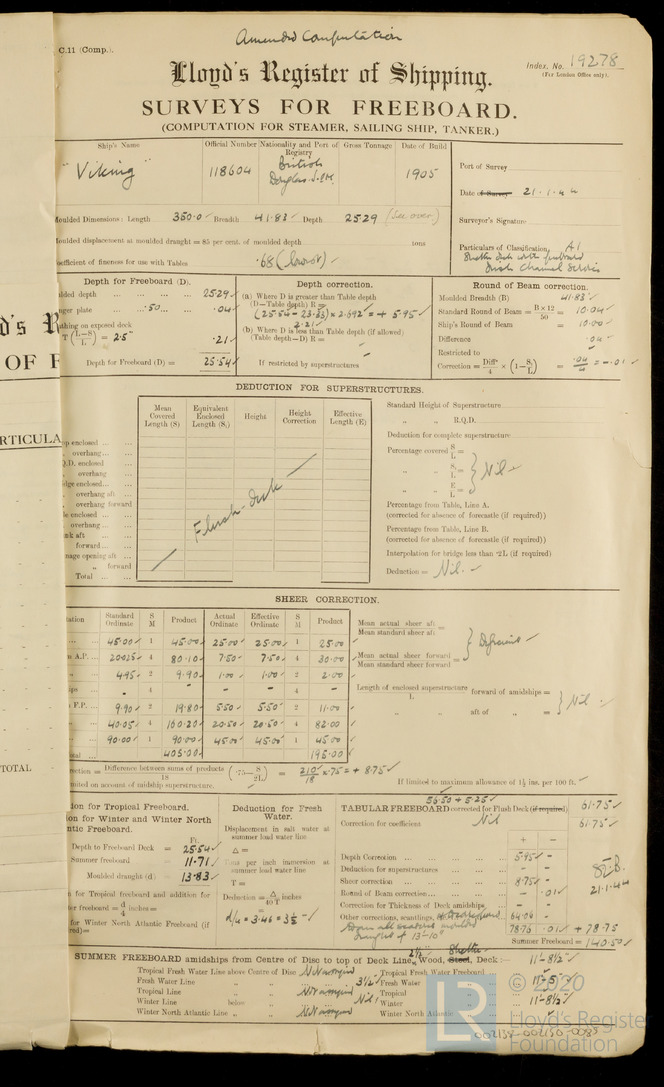 Amended Computation
C.11 (Comp.).
Index. No. 19278
(For London Office only).
Lloyd's Register of Shipping.
SURVEYS FOR FREEBOARD.
(COMPUTATION FOR STEAMER, SAILING SHIP, TANKER.)
Ship's Name Official Number Nationality and Port of Registry Gross Tonnage Date of Build
"Viking" 118604 British Douglas I.o.M. 1905
Port of Survey
Date of Survey 21.1.44
Surveyor's Signature
Particulars of Classification A1
Moulded Dimensions: Length 350.0 Breadth 41.83 Depth 25.29 (See over)
Moulded displacement at moulded draught = 85 per cent. of moulded depth tons
Coefficient of fineness for use with Tables .68 (lowest)
Depth for Freeboard (D).
Moulded depth 25.29
Stringer plate .50 .04
Sheathing on exposed deck
T (L-S/L) = 2.5" .21
Depth for Freeboard (D) = 25.54
Depth correction.
(a) Where D is greater than Table depth
(D—Table depth) R =
(25.54 - 23.33) × 2.692 = + 5.95
2.21
(b) Where D is less than Table depth (if allowed)
(Table depth—D) R =
If restricted by superstructures
Round of Beam correction.
Moulded Breadth (B) 41.83
Standard Round of Beam = B×12/50 = 10.04
Ship's Round of Beam = 10.00
Difference .04
Restricted to
Correction = Diff/4 × (1-S/L) = .04/4 = -.01
DEDUCTION FOR SUPERSTRUCTURES.
Mean Covered Length (S) Equivalent Enclosed Length (S₁) Height Height Correction Effective Length (E)
Flush-deck
Standard Height of Superstructure
" " R.Q.D.
Deduction for complete superstructure
Percentage covered S/L =
" " S₁/L = } Nil
" " E/L =
Percentage from Table, Line A.
(corrected for absence of forecastle (if required))
Percentage from Table, Line B.
(corrected for absence of forecastle (if required))
Interpolation for bridge less than ·2L (if required)
Deduction = Nil.
SHEER CORRECTION.
Standard Ordinate S M Product Actual Ordinate Effective Ordinate S M Product
45.00 1 45.00 25.00 25.00 1 25.00
A.P. 20.025 4 80.10 7.50 7.50 4 30.00
4.95 2 9.90 1.00 1.00 2 2.00
- 4 - - - 4 -
F.P. 9.90 2 19.80 5.50 5.50 2 11.00
40.05 4 160.20 20.50 20.50 4 82.00
90.00 1 90.00 45.00 45.00 1 45.00
Total 405.00 195.00
Mean actual sheer aft =
Mean standard sheer aft } Deficient
Mean actual sheer forward =
Mean standard sheer forward
Length of enclosed superstructure forward of amidships =
L } Nil
" " aft of " =
Correction = Difference between sums of products/18 (·75-S/2L) = 210/18 × .75 = + 8.75
If limited to maximum allowance of 1½ ins. per 100 ft.
Deduction for Tropical Freeboard.
Deduction for Winter and Winter North Atlantic Freeboard.
Ft.
Depth to Freeboard Deck = 25.54
Summer freeboard = 11.71
Moulded draught (d) = 13.83
Deduction for Fresh Water.
Displacement in salt water at summer load water line
Δ =
Tons per inch immersion at summer load water line
T =
Deduction = Δ/40T inches
d/4 = 3.46 = 3½"
56.50 + 5.25
TABULAR FREEBOARD corrected for Flush Deck (if required) 61.75
Correction for coefficient Nil 61.75
+ -
Depth Correction 5.95 -
Deduction for superstructures - -
Sheer correction 8.75 -
Round of Beam correction - .01
Correction for Thickness of Deck amidships - -
Other corrections, scantlings, 64.06 -
draught of 13'-10" 78.76 .01 + 78.75
Summer Freeboard = 140.50
21.1.44
SUMMER FREEBOARD amidships from Centre of Disc to top of Deck Line, 2½ Wood, Steel, Shelter Deck:— 11'-8½"
Tropical Fresh Water Line above Centre of Disc Not assigned Tropical Fresh Water Freeboard
Fresh Water Line " " 3½" Fresh Water " 11'-5"
Tropical Line " " Nil Tropical " 11'-8½"
Winter Line below " " Not assigned Winter "
Winter North Atlantic Line " " Not assigned Winter North Atlantic "
© 2020
LR
Lloyd's Register
Foundation
002134-002150-0085
d's R
OF F
ARTICULA
TOTAL